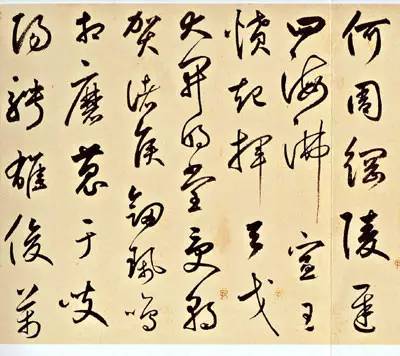 何周綱陵遲
四海沸宣王
憤起揮天戈
大開明堂受朝
賀諸侯劍珮鳴
相磨蒐于岐
陽騁雄俊萬